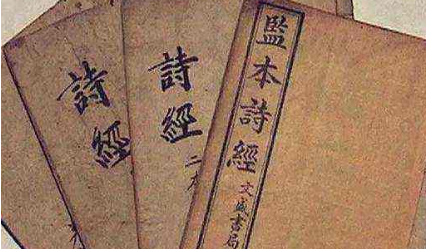 詩經
詩經
二
監本詩經
文盛書局